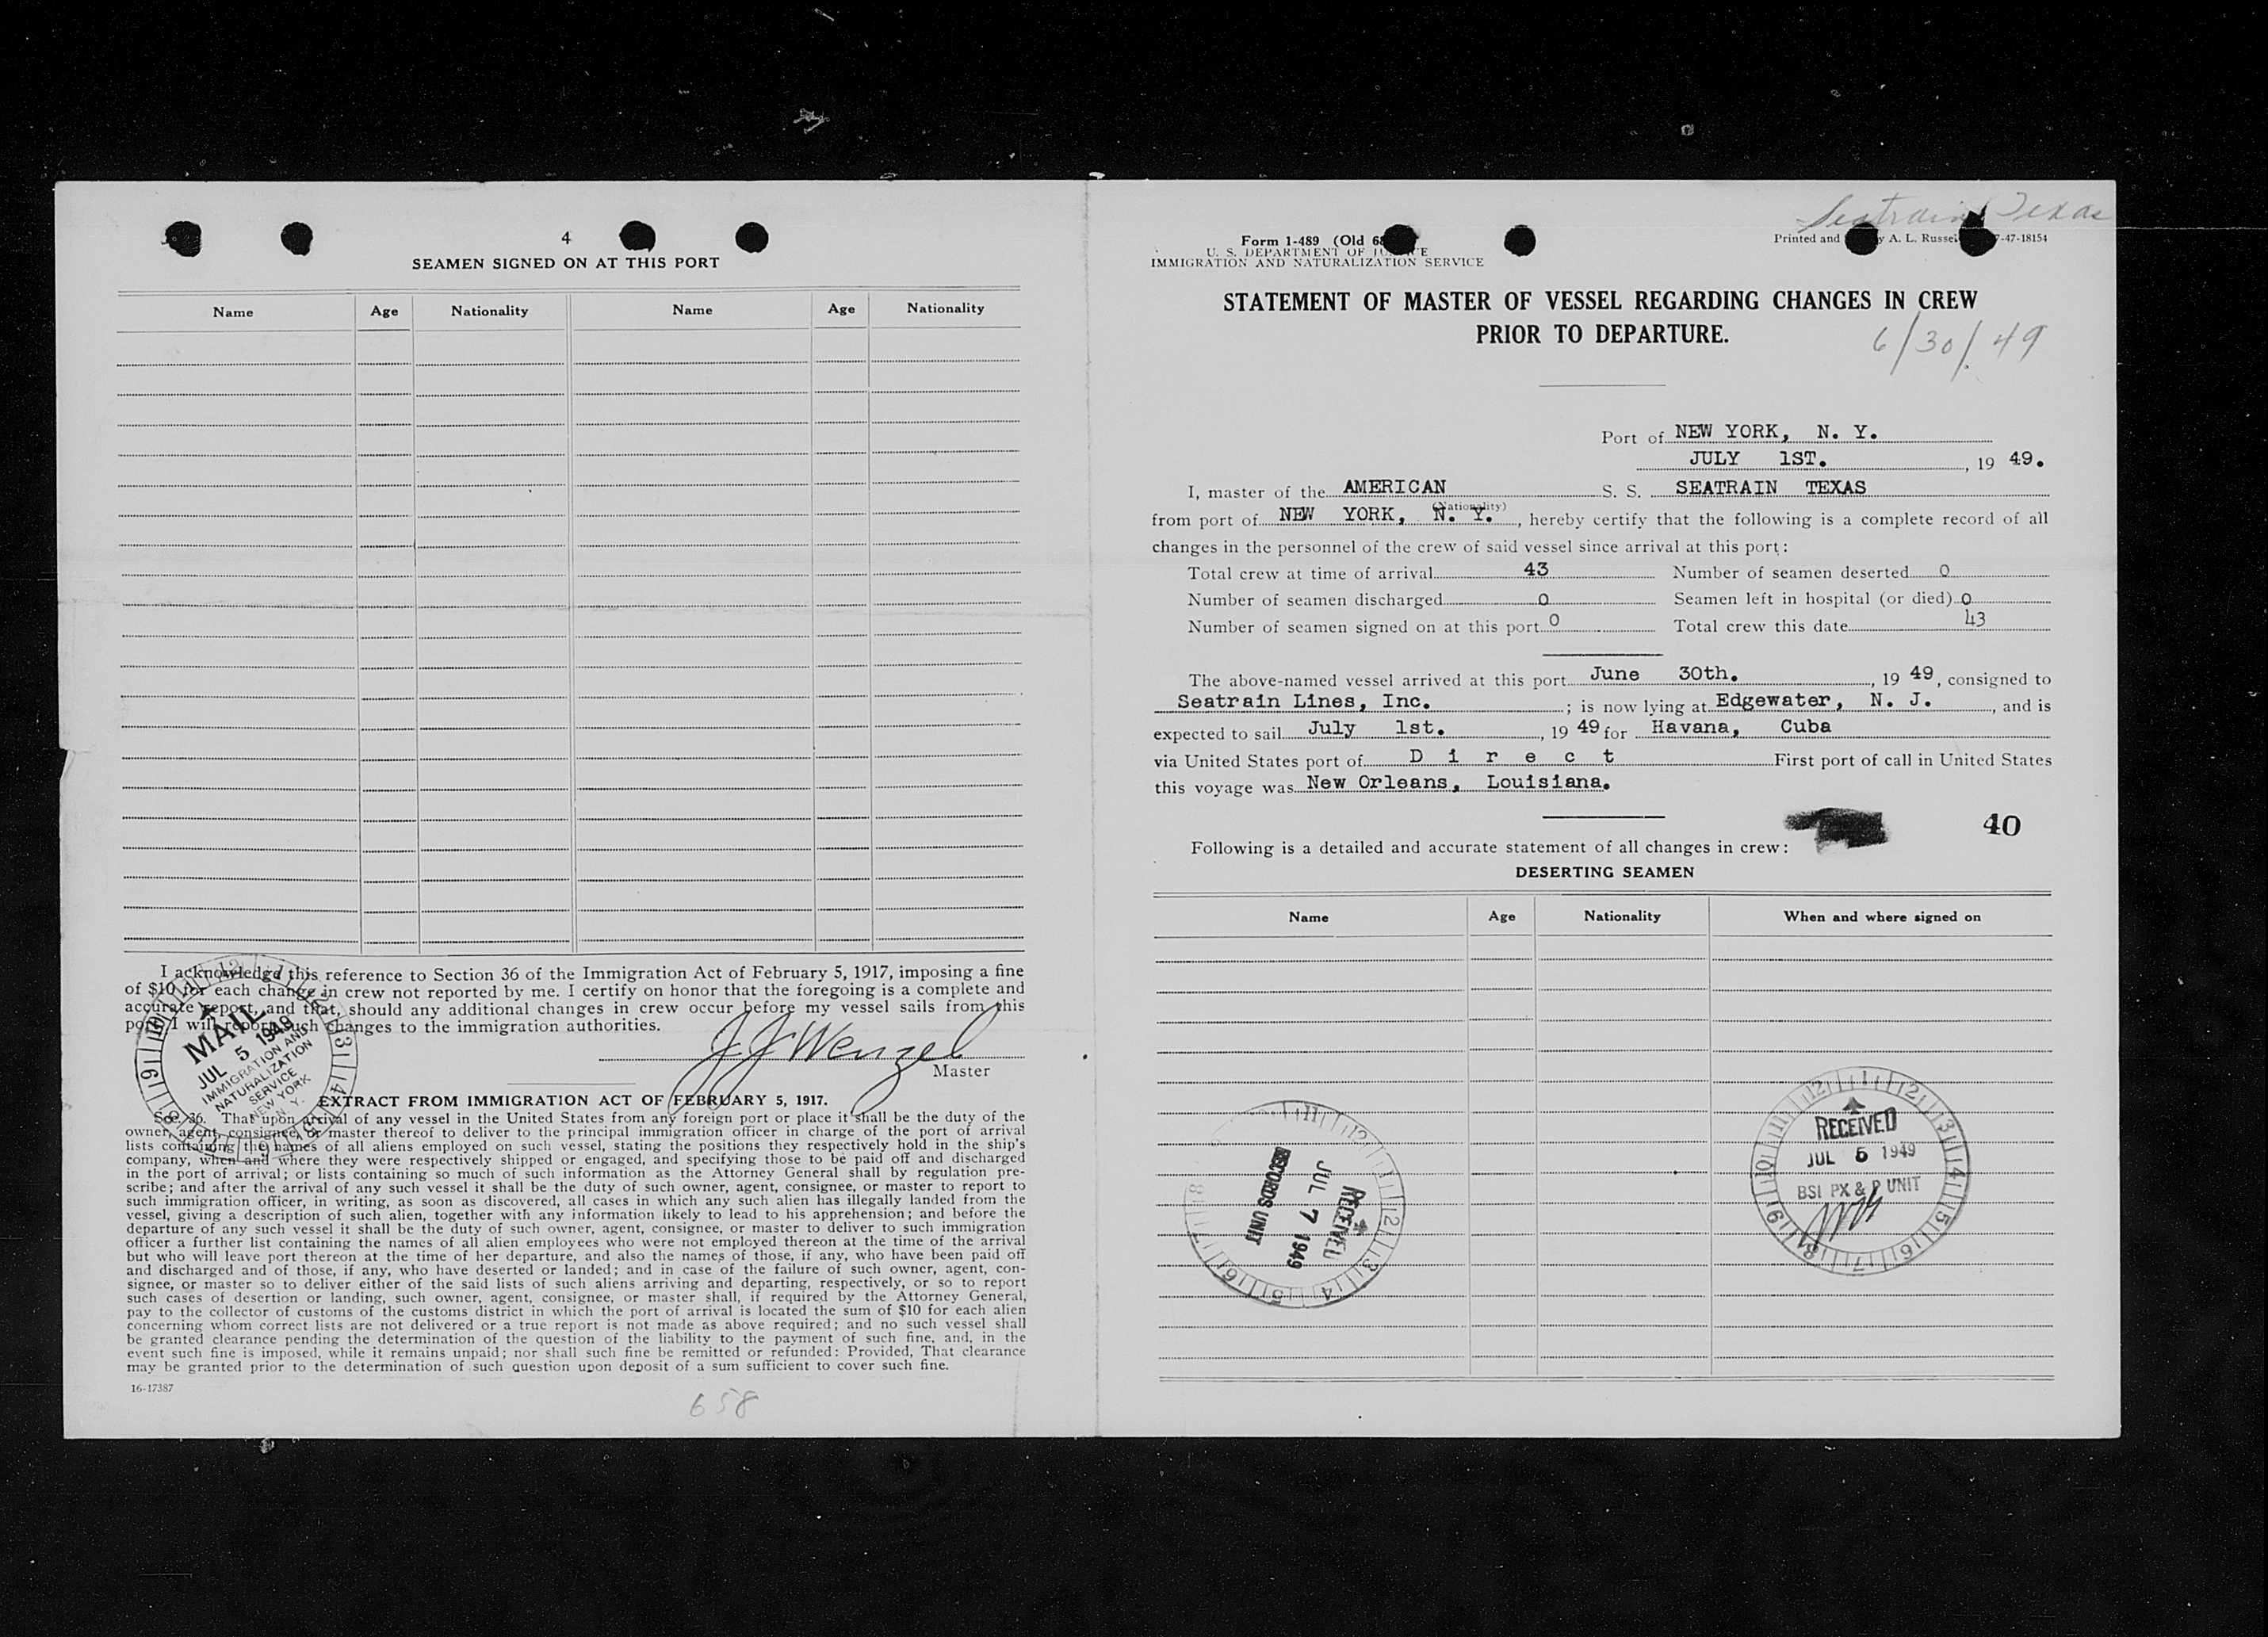 4
SEAMEN SIGNED ON AT THIS PORT
Name Age Nationality Name Age Nationality
I acknowledge this reference to Section 36 of the Immigration Act of February 5, 1917, imposing a fine
of $10 for each change in crew not reported by me. I certify on honor that the foregoing is a complete and
accurate report, and that, should any additional changes in crew occur before my vessel sails from this
port, I will report such changes to the immigration authorities.
MAIL
JUL 5 1949
IMMIGRATION AND
NATURALIZATION
SERVICE
NEW YORK
N. Y.
J J Wenzel
Master
EXTRACT FROM IMMIGRATION ACT OF FEBRUARY 5, 1917.
Sec. 36. That upon arrival of any vessel in the United States from any foreign port or place it shall be the duty of the
owner, agent, consignee, or master thereof to deliver to the principal immigration officer in charge of the port of arrival
lists containing the names of all aliens employed on such vessel, stating the positions they respectively hold in the ship's
company, when and where they were respectively shipped or engaged, and specifying those to be paid off and discharged
in the port of arrival; or lists containing so much of such information as the Attorney General shall by regulation pre-
scribe; and after the arrival of any such vessel it shall be the duty of such owner, agent, consignee, or master to report to
such immigration officer, in writing, as soon as discovered, all cases in which any such alien has illegally landed from the
vessel, giving a description of such alien, together with any information likely to lead to his apprehension; and before the
departure of any such vessel it shall be the duty of such owner, agent, consignee, or master to deliver to such immigration
officer a further list containing the names of all alien employees who were not employed thereon at the time of the arrival
but who will leave port thereon at the time of her departure, and also the names of those, if any, who have been paid off
and discharged and of those, if any, who have deserted or landed; and in case of the failure of such owner, agent, con-
signee, or master so to deliver either of the said lists of such aliens arriving and departing, respectively, or so to report
such cases of desertion or landing, such owner, agent, consignee, or master shall, if required by the Attorney General,
pay to the collector of customs of the customs district in which the port of arrival is located the sum of $10 for each alien
concerning whom correct lists are not delivered or a true report is not made as above required; and no such vessel shall
be granted clearance pending the determination of the question of the liability to the payment of such fine, and, in the
event such fine is imposed, while it remains unpaid; nor shall such fine be remitted or refunded: Provided, That clearance
may be granted prior to the determination of such question upon deposit of a sum sufficient to cover such fine.
16-17387
658
Seatrain Texas
Form 1-489 (Old 68
U. S. DEPARTMENT OF JUSTICE
IMMIGRATION AND NATURALIZATION SERVICE
Printed and y A. L. Russel 7-47-18154
STATEMENT OF MASTER OF VESSEL REGARDING CHANGES IN CREW
PRIOR TO DEPARTURE.
6/30/49
Port of NEW YORK, N. Y.
JULY 1ST. , 19 49.
I, master of the AMERICAN S. S. SEATRAIN TEXAS
(Nationality)
from port of NEW YORK, N. Y. , hereby certify that the following is a complete record of all
changes in the personnel of the crew of said vessel since arrival at this port:
Total crew at time of arrival 43 Number of seamen deserted 0
Number of seamen discharged 0 Seamen left in hospital (or died) 0
Number of seamen signed on at this port 0 Total crew this date 43
The above-named vessel arrived at this port June 30th. , 19 49, consigned to
Seatrain Lines, Inc. ; is now lying at Edgewater, N. J. , and is
expected to sail July 1st. , 19 49 for Havana, Cuba
via United States port of D i r e c t First port of call in United States
this voyage was New Orleans, Louisiana.
40
Following is a detailed and accurate statement of all changes in crew:
DESERTING SEAMEN
Name Age Nationality When and where signed on
RECEIVED
JUL 7 1949
RECORDS UNIT
RECEIVED
JUL 5 1949
BSI PX & P UNIT